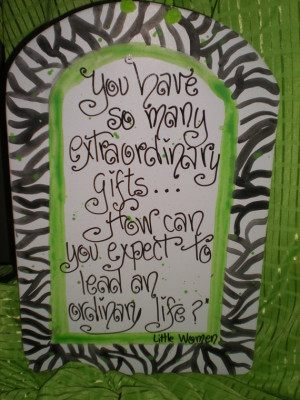 You have
so many
extraordinary
gifts...
How can
you expect to
lead an
ordinary life?"
Little Women